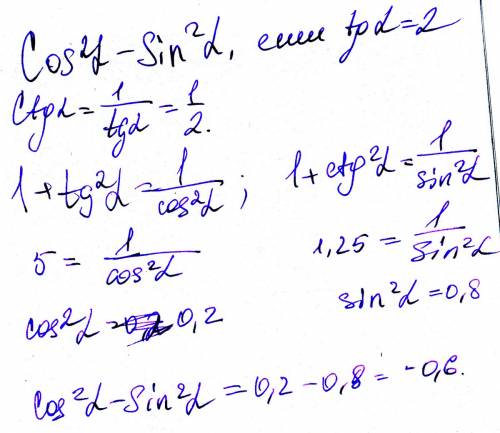 Cos²α – Sin²α, если tgα = 2
Ctgα = 1/tgα = 1/2.
1 + tg²α = 1/cos²α ; 1 + ctg²α = 1/sin²α
5 = 1/cos²α 1,25 = 1/Sin²α
cos²α = 0,2 sin²α = 0,8
cos²α – Sin²α = 0,2 – 0,8 = -0,6.